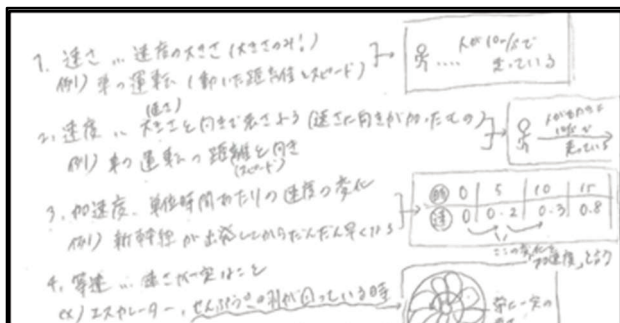 1. 速さ … 速度の大きさ(大きさのみ!)
例) 車の運転(動いた距離とスピード)
人が10m/sで
走っている
(速さ)
2. 速度 … 大きさと向きで表さよう(速さに向きが加ったもの)
例) 車の運転の距離と向き
(スピード)
10m/sで
走っている
3. 加速度. 単位時間あたりの速度の変化
例) 新幹線が出発してからだんだん早くなる
時 0 5 10 15
速 0 0.2 0.3 0.8
ここの変化を
"加速度"という
4. 等速 … 速さが一定なこと
ex) エスカレーター, せんぷうきの羽が回っている時
常に一定の